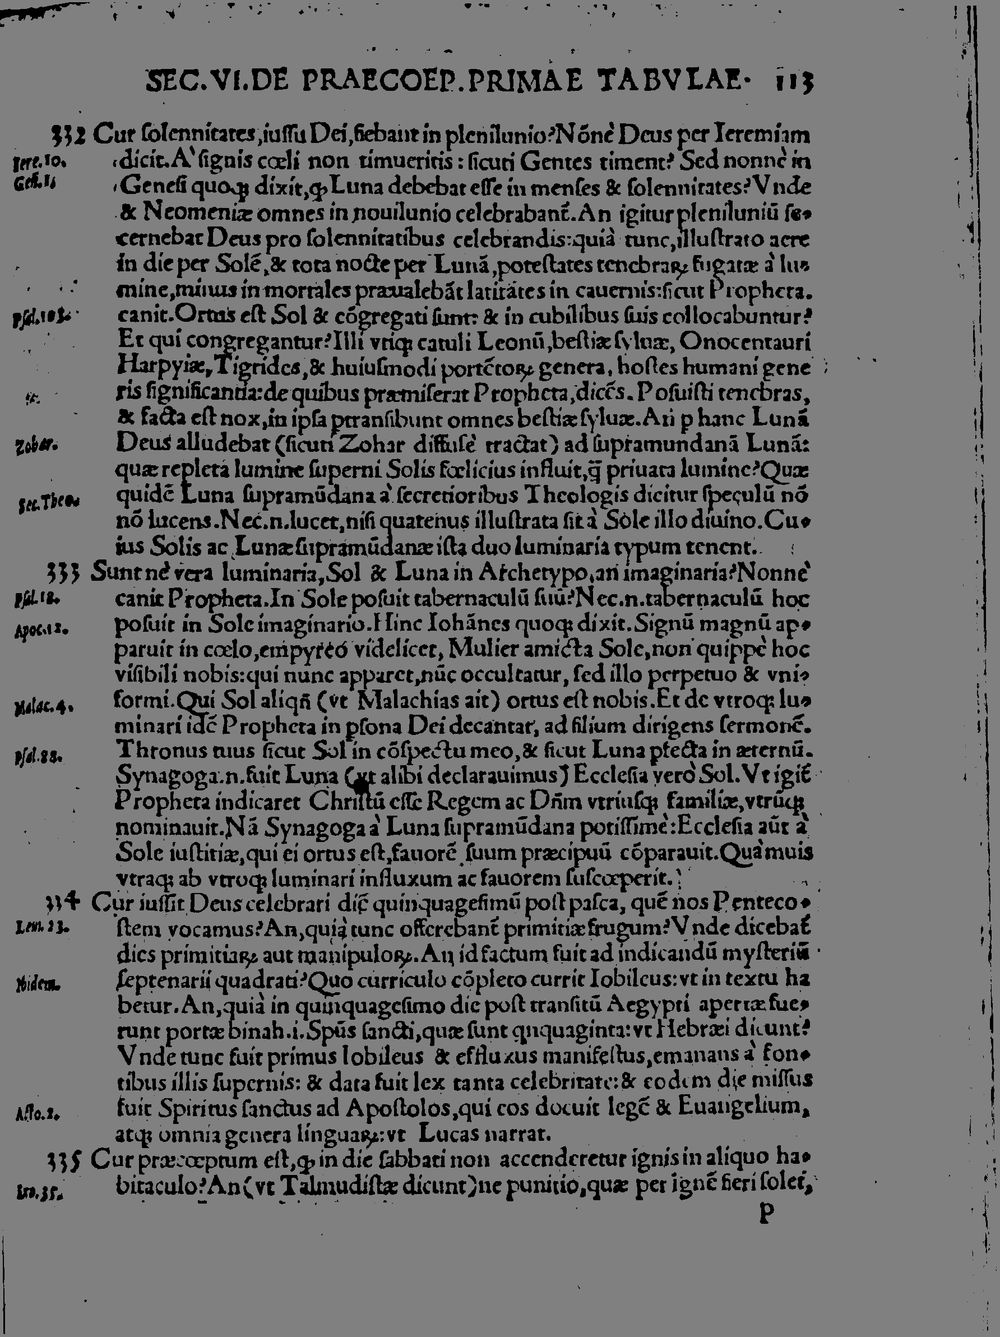 SEC.VI.DE PRAECOEP.PRIMAE TABVLAE. 113
332 Cur ſolennitates,iuſſu Dei,fiebant in plenilunio?Nõnè Deus per Ieremiam
Iere.10. dicit.A' ſignis cœli non timueritis: ſicuti Gentes timent? Sed nonnè in
Geñ.1. Geneſi quoqꝫ dixit,ꝙ Luna debebat eſſe in menſes & ſolennitates?Vnde
& Neomeniæ omnes in nouilunio celebrabant̃.An igitur pleniluniũ ſe-
cernebat Deus pro ſolennitatibus celebrandis:quià tunc,illuſtrato aere
in die per Solẽ,& tota nocte per Lunã,poteſtates tenebraꝝ fugatæ à lu-
mine,minus in mortales præualebãt latitãtes in cauernis:ſicut Propheta.
Pſal.103. canit.Ortus eſt Sol & cõgregati ſunt: & in cubilibus ſuis collocabuntur?
Et qui congregantur?Illi vtiqꝫ catuli Leonũ,beſtiæ ſyluæ, Onocentauri
Harpyiæ,Tigrides,& huiuſmodi portẽtoꝝ genera, hoſtes humani gene
ris ſignificantia:de quibus præmiſerat Propheta,dicẽs. Poſuiſti tenebras,
& facta eſt nox,in ipſa ꝑtranſibunt omnes beſtiæ ſyluæ.An ꝑ hanc Lunã
Zohar. Deus alludebat (ſicuti Zohar diffuſè tractat) ad ſupramundanã Lunã:
quæ repleta lumine ſuperni Solis fœlicius influit,q̃ priuata lumine?Quæ
Sec.Theo. quidẽ Luna ſupramũdana à ſecretioribus Theologis dicitur ſpeculũ nõ
nõ lucens.Nec.n.lucet,niſi quatenus illuſtrata ſit à Sole illo diuino.Cu-
ius Solis ac Lunæ ſupramũdanæ iſta duo luminaria typum tenent.
333 Sunt nè vera luminaria,Sol & Luna in Archetypo,an imaginaria?Nonnè
Pſal.18. canit Propheta.In Sole poſuit tabernaculũ ſuũ?Nec.n.tabernaculũ hoc
Apoc.12. poſuit in Sole imaginario.Hinc Iohãnes quoqꝫ dixit.Signũ magnũ ap-
paruit in cœlo,empyreo videlicet, Mulier amicta Sole,non quippè hoc
viſibili nobis:qui nunc apparet,nũc occultatur, ſed illo perpetuo & vni-
Malac.4. formi.Qui Sol aliqñ (vt Malachias ait) ortus eſt nobis.Et de vtroqꝫ lu-
minari idẽ Propheta in ꝑſona Dei decantat, ad filium dirigens ſermonẽ.
Pſal.88. Thronus tuus ſicut Sol in cõſpectu meo,& ſicut Luna ꝑfecta in æternũ.
Synagoga.n.fuit Luna (vt alibi declarauimus) Eccleſia verò Sol.Vt igit̃
Propheta indicaret Chriſtũ eſſe Regem ac Dñm vtriuſqꝫ familiæ,vtrũqꝫ
nominauit.Nã Synagoga à Luna ſupramũdana potiſſimè:Eccleſia aũt à
Sole iuſtitiæ,qui ei ortus eſt,fauorẽ ſuum præcipuũ cõparauit.Quàmuis
vtraqꝫ ab vtroqꝫ luminari influxum ac fauorem ſuſcœperit.
334 Cur iuſſit Deus celebrari diẽ quinquageſimũ poſt paſca, quẽ nos Penteco-
Leui.23. ſtem vocamus?An,quià tunc offerebant̃ primitiæ frugum?Vnde dicebat̃
dies primitiaꝝ aut manipuloꝝ.An id factum fuit ad indicandũ myſteriũ
Ibidem. ſeptenarii quadrati?Quo curriculo cõpleto currit Iobileus:vt in textu ha
betur.An,quià in quinquageſimo die poſt tranſitũ Aegypti apertæ fue-
runt portæ binah.i.Spũs ſancti,quæ ſunt qnquaginta:vt Hebræi dicunt?
Vnde tunc fuit primus Iobileus & effluxus manifeſtus,emanans à fon-
tibus illis ſupernis: & data fuit lex tanta celebritate:& eodem die miſſus
Acto.2. fuit Spiritus ſanctus ad Apoſtolos,qui eos docuit legẽ & Euangelium,
atqꝫ omnia genera linguaꝝ:vt Lucas narrat.
335 Cur præcœptum eſt,ꝙ in die ſabbati non accenderetur ignis in aliquo ha-
Exo.35. bitaculo?An(vt Talmudiſtæ dicunt)ne punitio,quæ per ignẽ fieri ſolet,
P